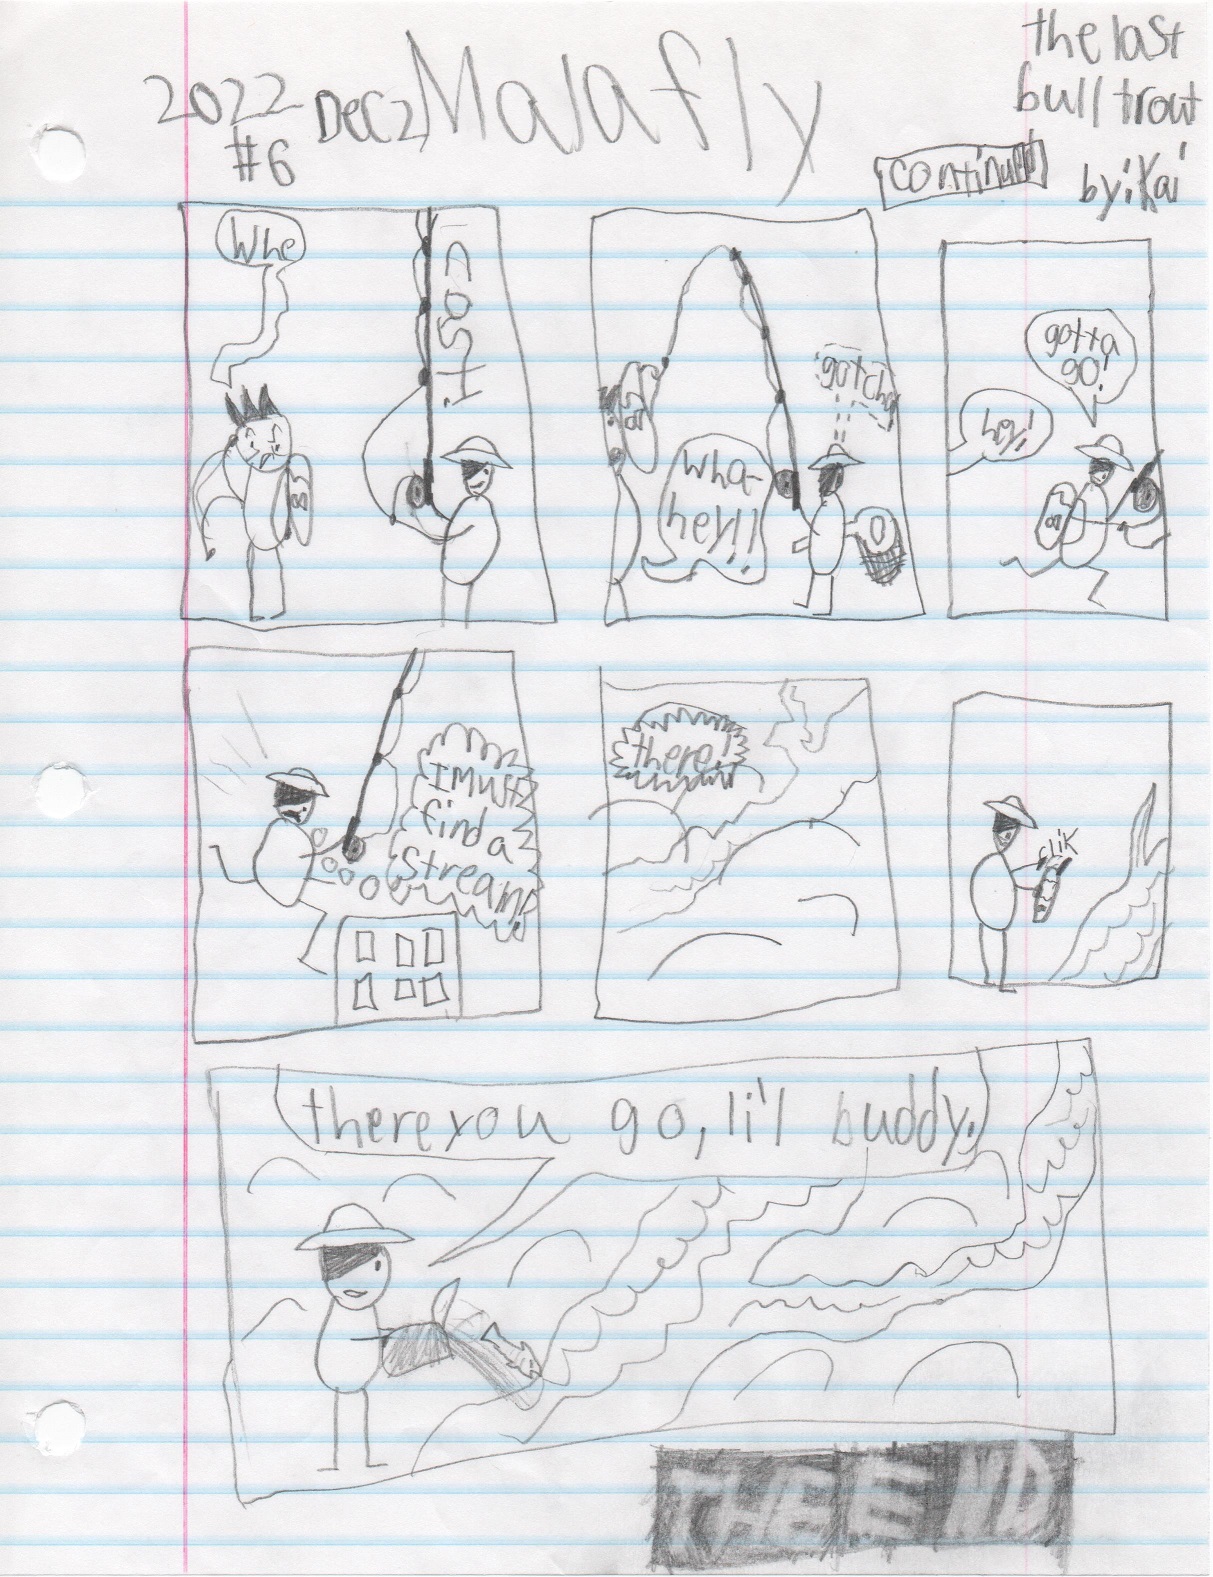 2022 Dec 2
#6
Malafly
the last
bull trout
continued
by: Kai
Whe
cast!
gotcha!
wha-
hey!!
gotta
go!
hey!
I Must
find a
Stream!
there!
CLIK
there you go, li'l buddy.
THE END